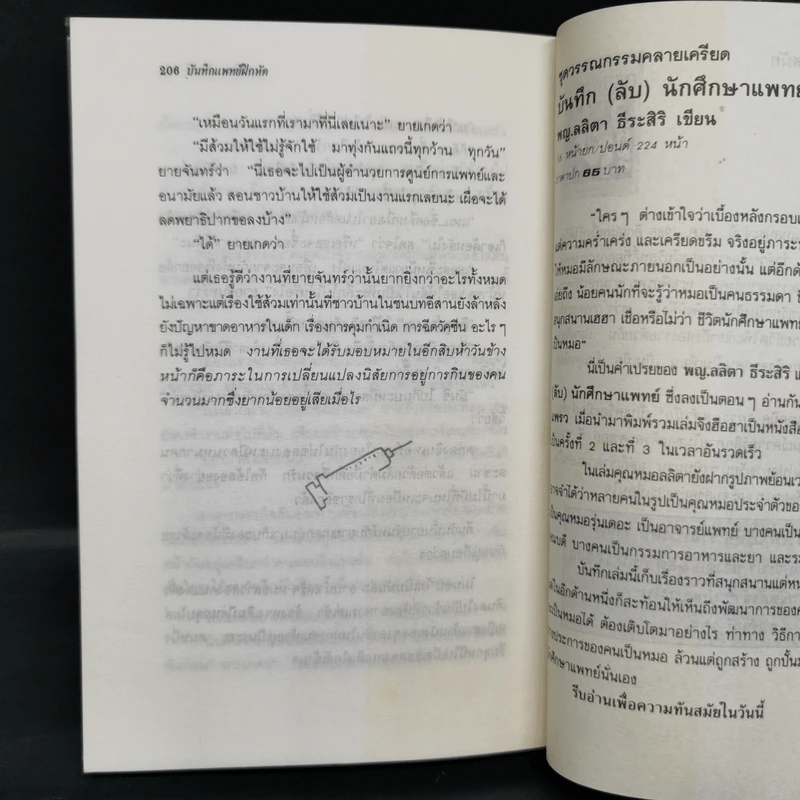 206 บันทึกแพทย์ฝึกหัด
"เหมือนวันแรกที่เรามาที่นี่เลยเนาะ" ยายเกดว่า
"มีส้วมให้ใช้ไม่รู้จักใช้ มาทุ่งกันแถวนี้ทุกว้าน ทุกวัน"
ยายจันทร์ว่า "นี่เธอจะไปเป็นผู้อำนวยการศูนย์การแพทย์และ
อนามัยแล้ว สอนชาวบ้านให้ใช้ส้วมเป็นงานแรกเลยนะ เผื่อจะได้
ลดพยาธิปากขอลงบ้าง"
"ได้" ยายเกดว่า
แต่เธอรู้ดีว่างานที่ยายจันทร์ว่านั้นยากยิ่งกว่าอะไรทั้งหมด
ไม่เฉพาะแต่เรื่องใช้ส้วมเท่านั้นที่ชาวบ้านในชนบทอีสานยังล้าหลัง
ยังปัญหาขาดอาหารในเด็ก เรื่องการคุมกำเนิด การฉีดวัคซีน อะไร ๆ
ก็ไม่รู้ไปหมด งานที่เธอจะได้รับมอบหมายในอีกสิบห้าวันข้าง
หน้าก็คือภาระในการเปลี่ยนแปลงนิสัยการอยู่การกินของคน
จำนวนมากซึ่งยากน้อยอยู่เสียเมื่อไร
ชุดวรรณกรรมคลายเครียด
บันทึก (ลับ) นักศึกษาแพทย์
พญ.ลลิตา ธีระสิริ เขียน
หน้ายก/ปอนด์ 224 หน้า
ราคาปก 65 บาท
"ใคร ๆ ต่างเข้าใจว่าเบื้องหลังกรอบ
แต่ความคร่ำเคร่ง และเครียดขรึม จริงอยู่ภาระ
ให้หมอมีลักษณะภายนอกเป็นอย่างนั้น แต่อีกด้
น้อยคนนักที่จะรู้ว่าหมอเป็นคนธรรมดา
สนุกสนานเฮฮา เชื่อหรือไม่ว่า ชีวิตนักศึกษาแพทย์
เป็นหมอ"
นี่เป็นคำเปรยของ พญ.ลลิตา ธีระสิริ
(ลับ) นักศึกษาแพทย์ ซึ่งลงเป็นตอน ๆ อ่านกัน
แพรว เมื่อนำมาพิมพ์รวมเล่มจึงฮือฮาเป็นหนังสือ
เป็นครั้งที่ 2 และที่ 3 ในเวลาอันรวดเร็ว
ในเล่มคุณหมอลลิตายังฝากรูปภาพย้อน
จำได้ว่าหลายคนในรูปเป็นคุณหมอประจำตัวของ
เป็นคุณหมอรุ่นเดอะ เป็นอาจารย์แพทย์ บางคนเป็น
คณบดี บางคนเป็นกรรมการอาหารและยา และ
บันทึกเล่มนี้เก็บเรื่องราวที่สนุกสนาน
ในอีกด้านหนึ่งก็สะท้อนให้เห็นถึงพัฒนาการของ
จะเป็นหมอได้ ต้องเติบโตมาอย่างไร ท่าทาง วิธี
ประการของคนเป็นหมอ ล้วนแต่ถูกสร้าง ถูกปั้น
นักศึกษาแพทย์นั่นเอง
รีบอ่านเพื่อความทันสมัยในวันนี้